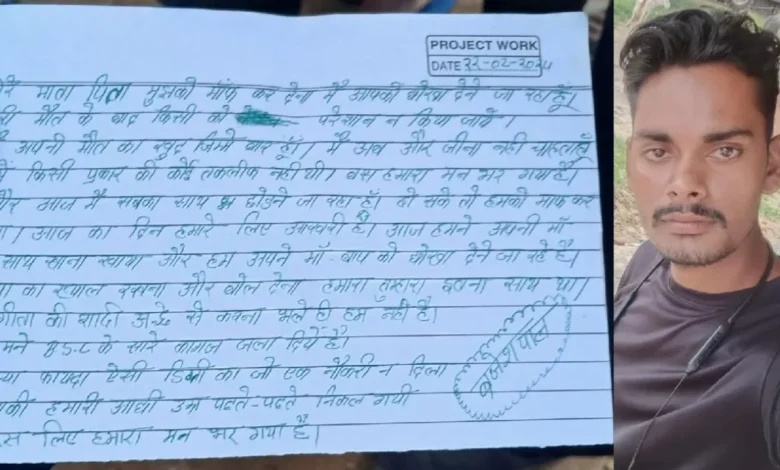 PROJECT WORK
DATE 22-02-2024
माता पिता मुझको माफ कर देना मैं आपको धोखा देने जा रहा हूँ।
मौत के बाद किसी को परेशान न किया जाये।
अपनी मौत का खुद जिम्मेवार हूँ। मैं अब और जीना नही चाहता हूँ
किसी प्रकार की कोई तकलीफ नही थी। बस हमारा मन भर गया है।
और आज मैं सबका साथ छोड़ने जा रहा हूँ। हो सके तो हमको माफ कर
। आज का दिन हमारे लिए आखरी है। आज हमने अपनी माँ
साथ खाना खाया और हम अपने माँ-बाप को धोखा देने जा रहे है।
का ख्याल रखना और बोल देना हमारा तुम्हारा इतना साथ था।
की शादी अच्छे से करना भले ही हम नहीं है।
मने B.S.C के सारे कागज जला दिये है।
क्या फायदा ऐसी डिग्री का जो एक नौकरी न दिला
हमारी आधी उम्र पढते-पढते निकल गयी
लिए हमारा मन भर गया है।
बृजेश पाल